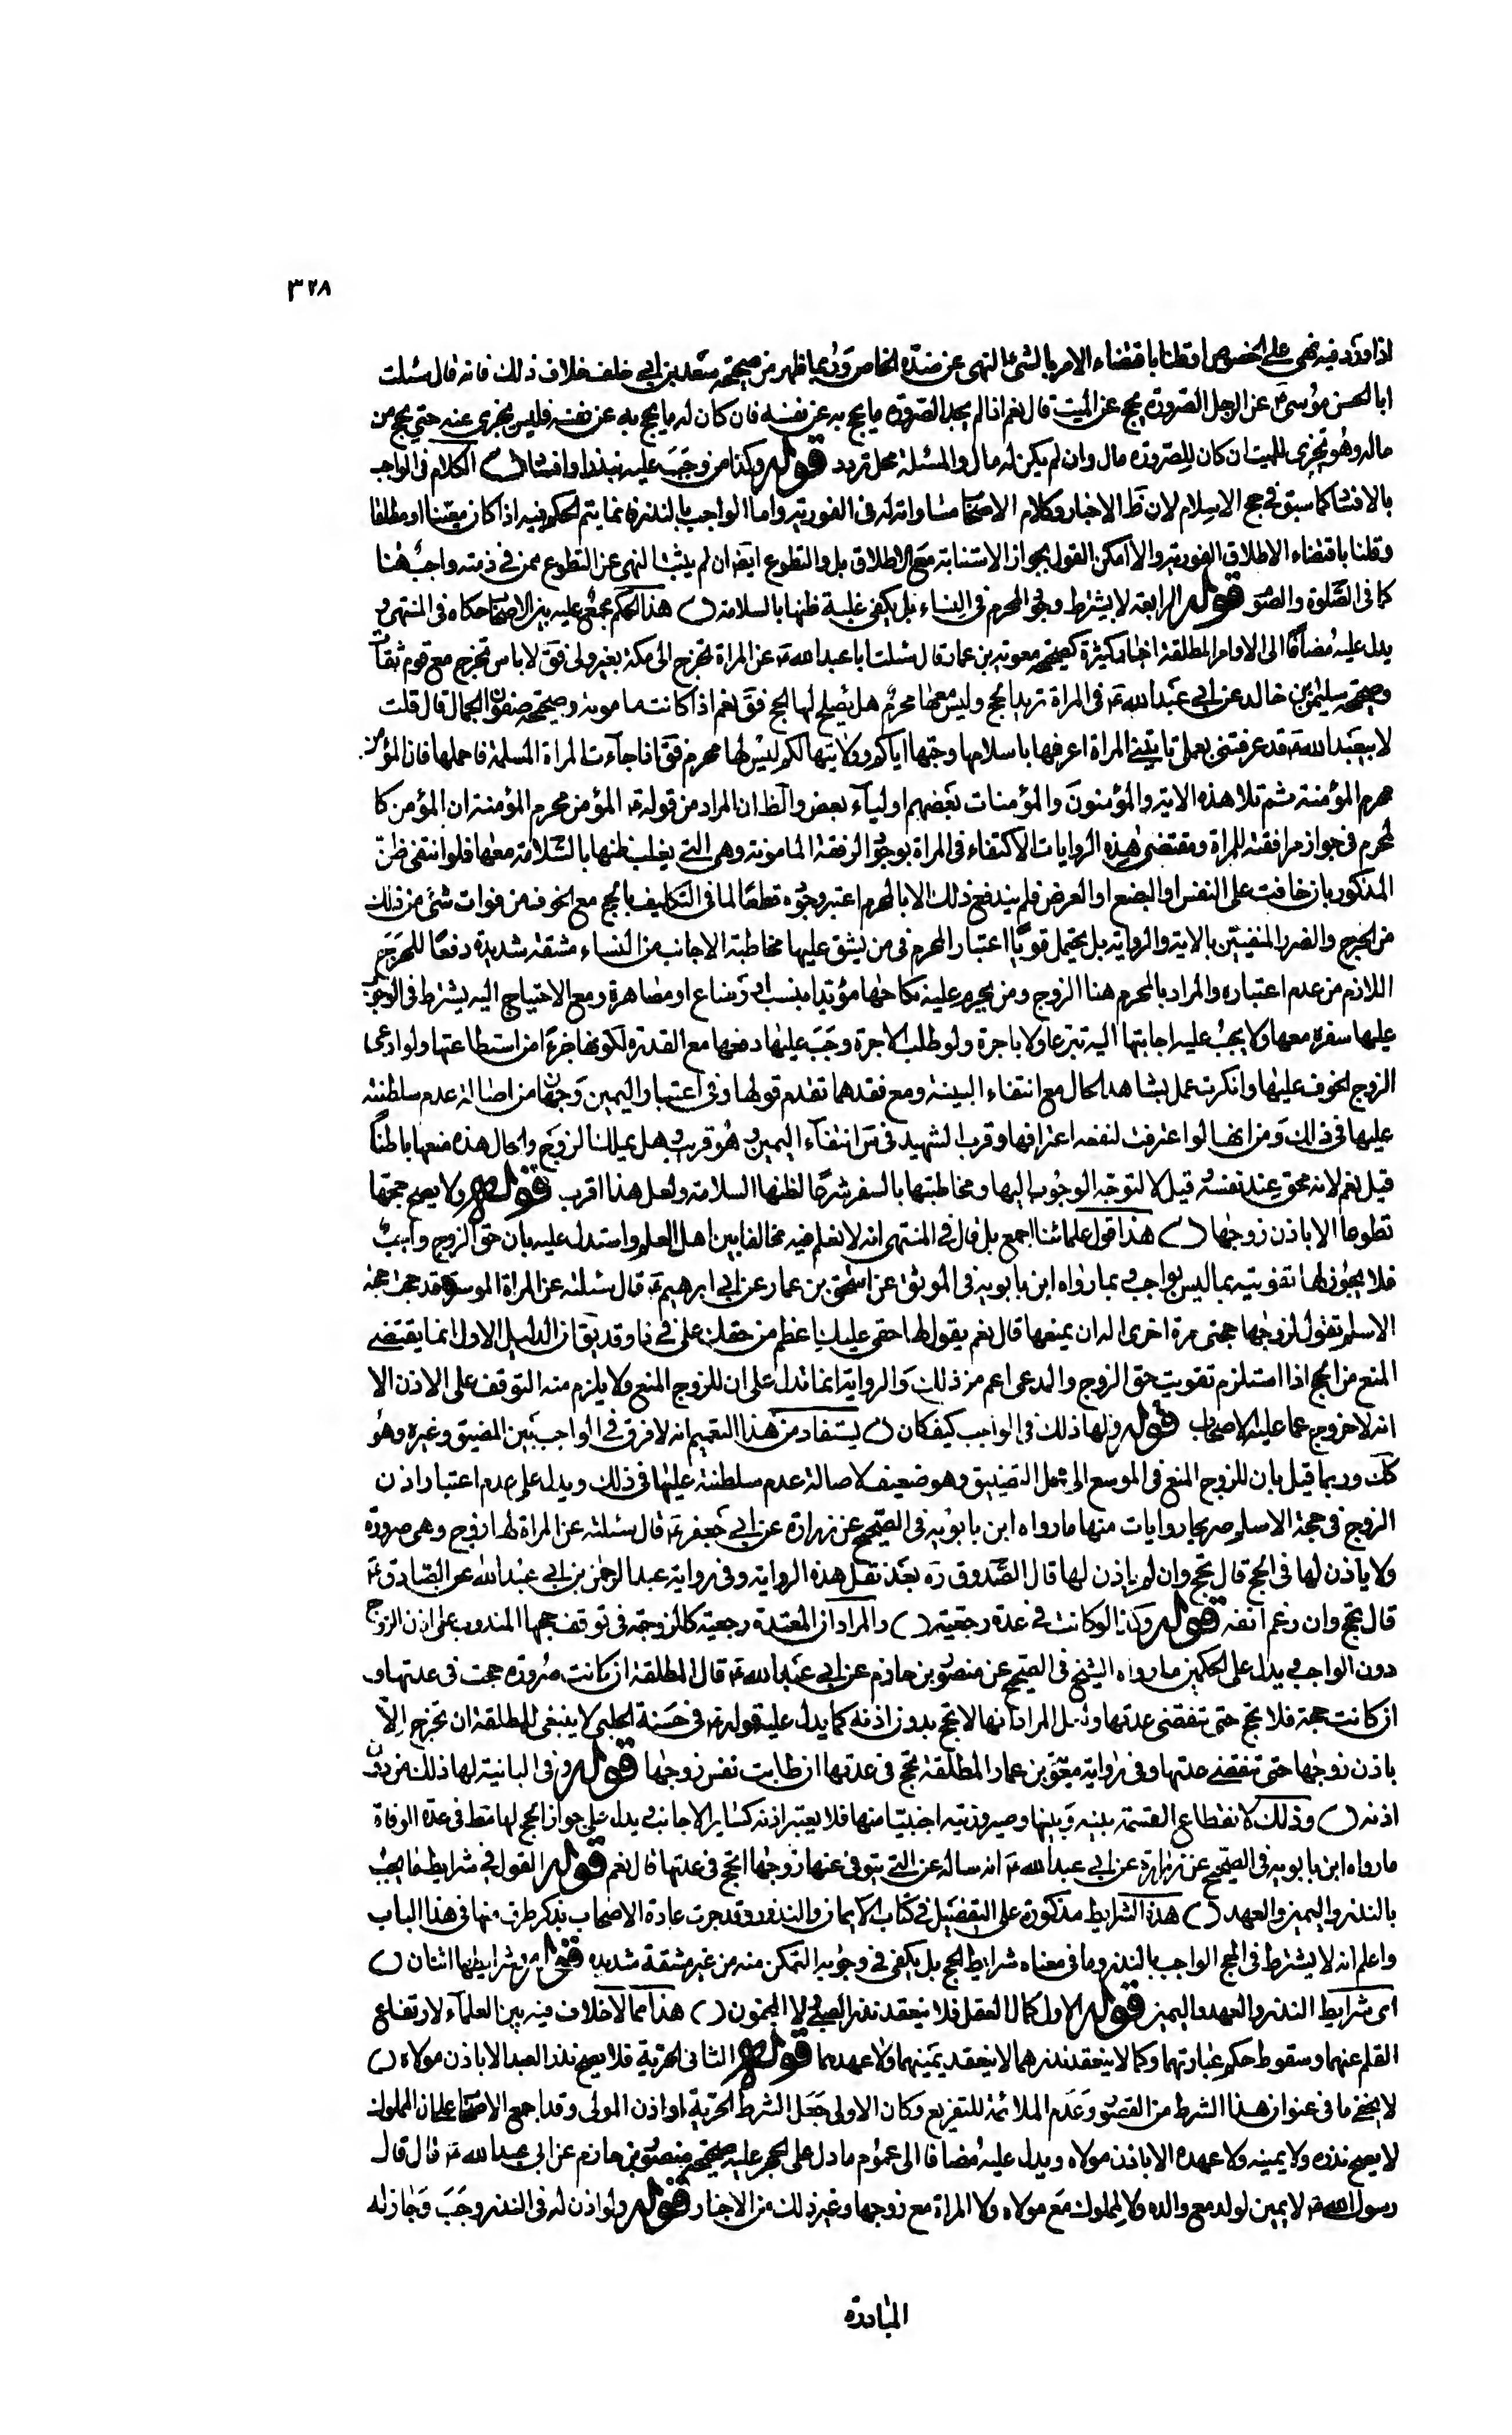 ٣٢٨
اذا ورد فيه نهى على الخصوص او قلنا باقتضاء الامر بالشئ النهى عن ضده الخاص وربما ظهر من صحيحة سعد بن ابى خلف خلاف ذلك فانه قال سئلت
ابا الحسن موسىٰ عن الرجل الصرورة يحج عن الميت قال نعم اذا لم يجد الصرورة ما يحج به عن نفسه فان كان له ما يحج به عن نفسه فليس يجزى عنه حتى يحج من
ماله وهو تجزى للميت ان كان للصرورة مال وان لم يكن له مال والمسئلة محل تردد قوله وكذا من وجب عليه بنذر او افساد الكلام فى الواجب
بالافساد كما سبق فى حج الاسلام لان ظ الاخبار وكلام الاصحاب مساواته له فى الفورية واما الواجب بالنذر فانما يتم الحكم فيه اذا كان معينا او مطلقا
وقلنا باقتضاء الاطلاق الفورية والا امكن القول بجواز الاستنابة مع الاطلاق بل والتطوع ايضا ان لم يثبت النهى عن التطوع ممن فى ذمته واجب هنا
كما فى الصلوة والصوم قوله الرابعة لا يشترط وجود المحرم فى النساء بل يكفى غلبة ظنها بالسلامة هذا الحكم مجمع عليه بين الاصحاب حكاه فى المنتهى و
يدل عليه مضافا الى الاوامر المطلقة اخبار كثيرة كصحيحة معوية بن عمار قال سئلت ابا عبد الله ع عن المراة تخرج الى مكة بغير ولى فق لا باس تخرج مع قوم ثقات
وصحيحة سليمن بن خالد عن ابى عبد الله ع فى المراة تريد الحج وليس معها محرم هل يصلح لها الحج فق نعم اذا كانت مامونة وصحيحة صفوان الجمال قال قلت
لابيعبد الله ع قد عرفتنى بعملى تاتينى المراة اعرفها باسلامها وحبها اياكم وولايتها لكم ليس لها محرم فق اذا جاءت المراة المسلمة فاحملها فان المؤمن
محرم المؤمنة ثم تلا هذه الاية والمؤمنون والمؤمنات بعضهم اولياء بعض والظ ان المراد من قوله ع المؤمن محرم المؤمنة ان المؤمن كا
لمحرم فى جواز مرافقته للمراة ومقتضى هذه الروايات الاكتفاء فى المراة بوجود الرفقة المامونة وهى التى يغلب ظنها بالسلامة معها فلو انتفى ظن
المذكور بان خافت على النفس او البضع او العرض فلم يندفع ذلك الا بالمحرم اعتبر وجوده قطعا لما فى التكليف بالحج مع الخوف من فوات شئ من ذلك
من الحرج والضرر المنفيين بالاية والرواية بل يحتمل قويا اعتبار المحرم فى من يشق عليها مخاطبة الاجانب من النساء مشقة شديدة دفعا للحرج
اللازم من عدم اعتباره والمراد بالمحرم هنا الزوج ومن يحرم عليه نكاحها مؤبدا بنسب او رضاع او مصاهرة ومع الاحتياج اليه يشترط فى الوجوب
عليها سفره معها ولا يجب عليه اجابتها اليه تبرعا ولا باجرة ولو طلب الاجرة وجب عليها دفعها مع القدرة لكونها جزءا من استطاعتها ولو ادعى
الزوج الخوف عليها وانكرت عمل بشاهد الحال مع انتفاء البينة ومع فقدهما تقدم قولها وفى اعتبار اليمين وجهان من اصالة عدم سلطنته
عليها فى ذلك ومن انها لو اعترفت لنفعه اعترافها وقرب الشهيد فى س انتفاء اليمين وهو قريب وهل يملك الزوج والحال هذه منعها باطنا
قيل نعم لانه محق عند نفسه قيل لا لتوجه الوجوب اليها ومخاطبتها بالسفر شرعا لظنها السلامة ولعل هذا اقرب قوله ولا يصح حجها
تطوعا الا باذن زوجها هذا قول علمائنا اجمع بل قال فى المنتهى انه لا نعلم فيه مخالفا بين اهل العلم واستدل عليه بان حق الزوج واجب
فلا يجوز لها تفويته بما ليس بواجب وبما رواه ابن بابويه فى الموثق عن اسحق بن عمار عن ابى ابرهيم ع قال سئلته عن المراة الموسرة قد حجت حجة
الاسلم تقول لزوجها حجنى مرة اخرى اله ان يمنعها قال نعم يقول لها حقى عليك اعظم من حقك على فى ذا وقد يق ان الدليل الاول انما يقتضى
المنع من الحج اذا استلزم تفويت حق الزوج والمدعى اعم من ذلك والرواية انما تدل على ان للزوج المنع ولا يلزم منه التوقف على الاذن الا
انه لا خروج عما عليه الاصحاب قوله ولها ذلك فى الواجب كيف كان يستفاد من هذا التعميم انه لا فرق فى الواجب بين المضيق وغيره وهو
كك وربما قيل بان للزوج المنع فى الموسع الى محل التضييق وهو ضعيف لاصالة عدم سلطنته عليها فى ذلك ويدل على عدم اعتبار اذن
الزوج فى حجة الاسلم صريحا روايات منها ما رواه ابن بابويه فى الصحيح عن زرارة عن ابى جعفر ع قال سئلته عن المراة لها زوج وهى صرورة
ولا ياذن لها فى الحج قال تحج وان لم ياذن لها قال الصدوق ره بعد نقل هذه الرواية وفى رواية عبد الرحمن بن ابى عبد الله عن الصادق ع
قال تحج وان رغم انفه قوله وكذا لو كانت فى عدة رجعية والمراد ان المعتدة رجعية كالزوجة فى توقف حجها المندوب على اذن الزوج
دون الواجب ويدل على الحكمين ما رواه الشيخ فى الصحيح عن منصور بن حازم عن ابى عبد الله ع قال المطلقة ان كانت صرورة حجت فى عدتها و
ان كانت حجت فلا تحج حتى تقضى عدتها ولعل المراد انها لا تحج بدون اذنه كما يدل عليه قوله ع فى حسنة الحلبى لا ينبغى للمطلقة ان تخرج الا
باذن زوجها حتى تنقضى عدتها وفى رواية معوية بن عمار المطلقة تحج فى عدتها ان طابت نفس زوجها قوله وفى البائنة لها ذلك من دون
اذنه وذلك لانقطاع العصمة بينه وبينها وصيرورته اجنبيا منها فلا يعتبر اذنه كساير الاجانب ويدل على جواز الحج لها مط فى عدة الوفاة
ما رواه ابن بابويه فى الصحيح عن زرارة عن ابى عبد الله ع انه ساله عن التى يتوفى عنها زوجها اتحج فى عدتها قال نعم قوله القول فى شرايط ما يجب
بالنذر واليمين والعهد هذه الشرايط مذكورة على التفصيل فى كتاب الايمان والنذور وقد جرت عادة الاصحاب بذكر طرف منها فى هذا الباب
واعلم انه لا يشترط فى الحج الواجب بالنذر وما فى معناه شرايط الحج بل يكفى فى وجوبه التمكن منه من غير مشقة شديدة قوله وشرايطها اثنان
اى شرايط النذر والعهد واليمين قوله الاول كمال العقل فلا ينعقد نذر الصبى ولا المجنون هذا مما لا خلاف فيه بين العلماء لارتفاع
القلم عنهما وسقوط حكم عبارتهما وكما لا ينعقد نذرهما لا ينعقد يمينهما ولا عهدهما قوله الثانى الحرية فلا يصح نذر العبد الا باذن مولاه
لا يخفى ما فى عنوان هذا الشرط من القصور وعدم الملائمة للتفريع وكان الاولى جعل الشرط الحرية او اذن المولى وقد اجمع الاصحاب على ان المملوك
لا يصح نذره ولا يمينه ولا عهده الا باذن مولاه ويدل عليه مضافا الى عموم ما دل على الحجر عليه صحيحة منصور بن حازم عن ابى عبد الله ع قال قال
رسول الله ص لا يمين لولد مع والده ولا لمملوك مع مولاه ولا المراة مع زوجها وغير ذلك من الاخبار قوله ولو اذن له فى النذر وجب وجاز له
المبادرة